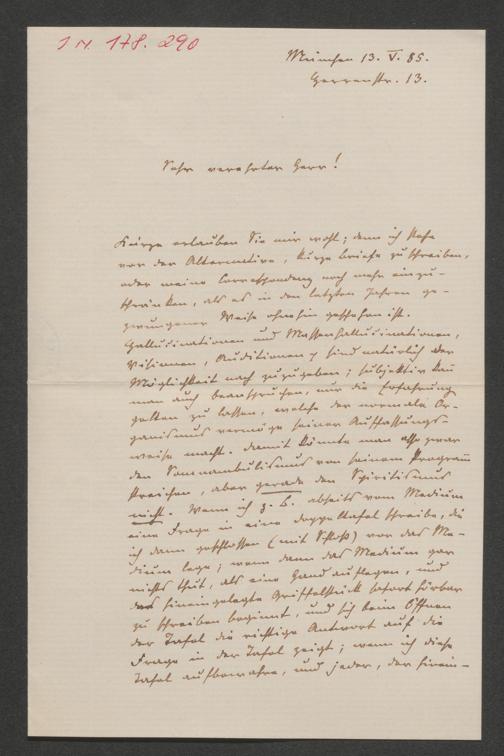 I N. 178.290
München 13. V. 85.
Herrenstr. 13.
Sehr verehrter Herr!
Kürze erlauben Sie mir wohl; denn ich stehe
vor der Alternative, kurze Briefe zu schreiben,
oder meine Correspondenz noch mehr einzu-
schränken, als es in den letzten Jahren ge-
zwungener Weise ohnehin geschehen ist.
Hallucinationen und Massenhallucinationen,
Visionen, Auditionen sind natürlich der
Möglichkeit nach zuzugeben; subjektiv kann
man auch beanspruchen, nur die Erfahrung
gelten zu lassen, welche der normale Or-
ganismus vermöge seiner Auffassungs-
weise macht. Damit könnte man zwar
den Somnambulismus von seinem Programm
streichen, aber gerade den Spiritismus
nicht. Wenn ich z. B. abseits vom Medium
eine Frage in eine Doppeltafel schreibe, die
ich dann geschlossen (mit Schloß) vor das Me-
dium lege; wenn dann das Medium gar
nichts thut, als eine Hand auflegen, und
das hineingelegte Griffelstück sofort hörbar
zu schreiben beginnt, und sich beim Öffnen
der Tafel die richtige Antwort auf die
Frage in der Tafel zeigt; wenn ich diese
Tafel aufbewahre, und jeder, der hinein-